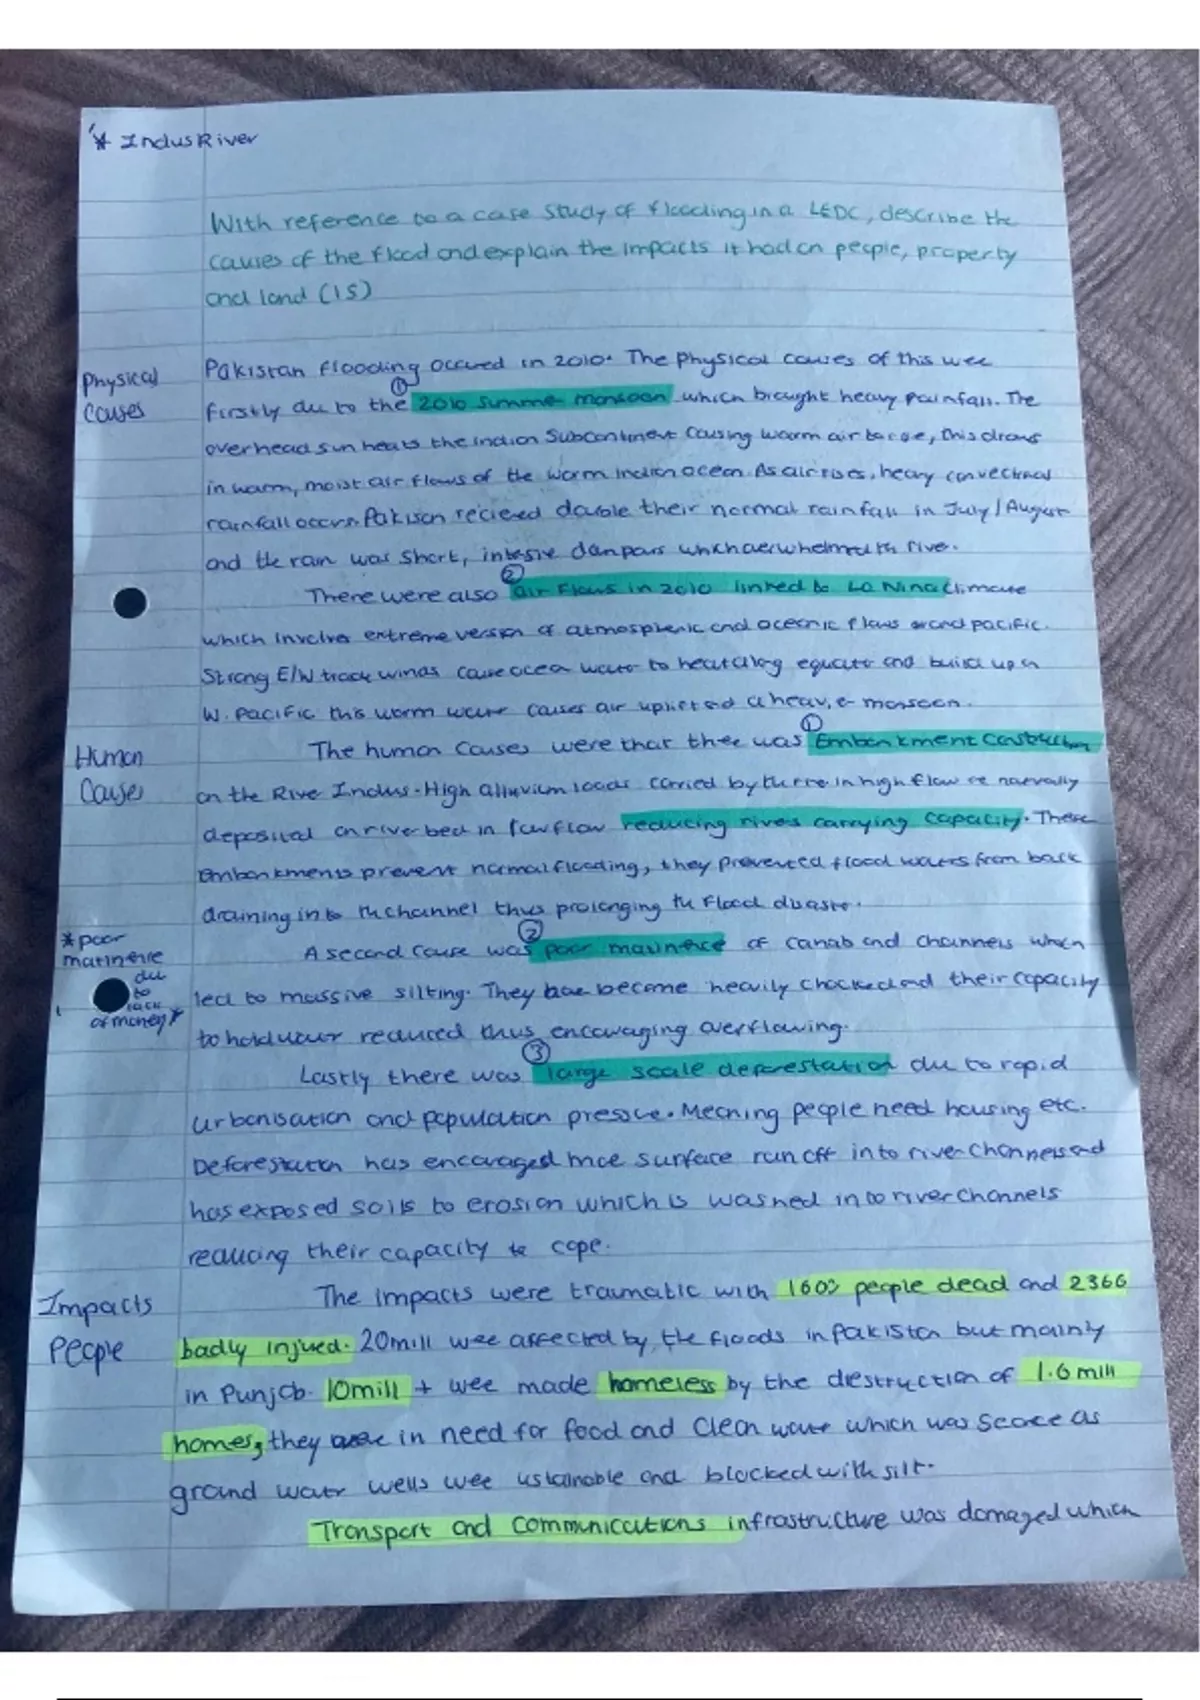 * Indus River
With reference to a case study of flooding in a LEDC, describe the
causes of the flood and explain the impacts it had on people, property
and land (15)
Physical
causes
Pakistan flooding occured in 2010. The physical causes of this wee
①
firstly du to the 2010 summe monsoon which brought heavy rainfall. The
overhead sun heats the indian subcontinent causing warm air to rise, this draws
in warm, moist air flows of the warm Indian ocean. As air rises, heavy convectional
rainfall occurs. Pakisan recieved double their normal rainfall in July/August
and the rain was short, intesive downpours which overwhelmed th river.
②
There were also air flows in 2010 linked to La Nina climate
which involves extreme version of atmospheric and oceanic flows around pacific.
Strong E/W track winds cause ocean water to heat along equator and build up in
W. Pacific this warm water causes air uplift and a heavier monsoon.
①
Human
Causes
The human causes were that thee was Embankment construction
on the Rive Indus. High alluvium loads carried by the rive in high flow re naturally
deposited on riverbed in low flow reducing rives carrying capacity. These
embankments prevent normal flooding, they prevented flood waters from back
draining into th channel thus prolonging th flood disaste.
②
* poor
matinence
du
to
lack
of money *
A second cause was poor matinence of canals and channels which
led to massive silting. They become heavily chocked and their capacity
to hold water reduced thus encouraging overflowing.
③
Lastly there was large scale deforestation du to rapid
urbanisation and population pressure. Meaning people need housing etc.
Deforestation has encouraged more surface run off into river channels and
has exposed soils to erosion which is washed into river channels
reducing their capacity to cope.
Impacts
People
The impacts were traumatic with people dead and 2366
badly injured. 20mill wee affected by the floods in Pakistan but mainly
in Punjab. 10mill + wee made homeless by the destruction of 1.6 mill
homes, they in need for food and clean water which was scarce as
ground water wells wee and blocked with silt.
Transport and communications infrastructure was damaged which